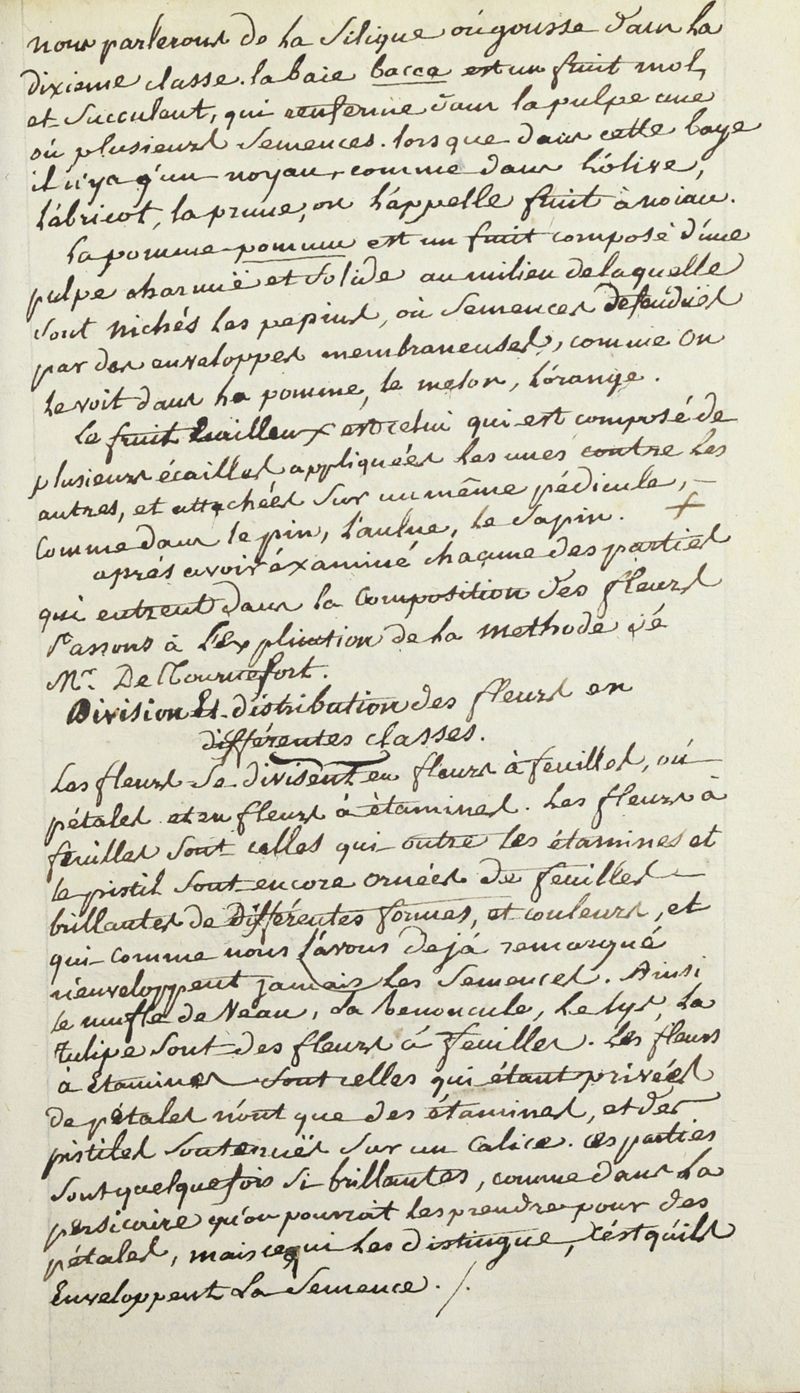 nous parlerons de la Silique où gousse dans la
dixieme classe. la baie bacca est un fruit mol,
et Succulent, qui renferme dans la pulpe une
où plusieurs Semences. lorsque dans cette baye
il n'ya q'un noyau, comme dans l'olive,
l'abricot, la prune, on l'appelle fruit à noiau.
la pomme pomum est un fruit composé d'une
pulpe charnuë et Solide au milieu de laquelle
sont nichés les pepins, où Semences defendues
par des enveloppes membraneuses, comme on
le voit dans la pomme, le melon, l'orange.
Le fruit Ecailleux est celui qui est composé de
plusieurs écailles appliquées les unes contre les
autres, et attachées sur un même pédicule,
Comme dans le pin, l'aulne, le Sapin. +
aprés avoir éxaminé chaqune des parties
qui entrent dans la Composition des fleurs
Passons à l'Explication de la methode de
Mr. De Tournefort.
Division Et distribution des fleurs en
différentes classes.
Les fleurs se divisent en fleurs à feuilles, où
pétales et en fleurs à étamines. Les fleurs à
feuilles sont celles qui outre les étamines et
le pistil sont encore ornées de feuilles
brillantes de différentes formes, et couleurs, et
qui comme nous l'avons dejá remarqué
n'enveloppent jamais les Semences. Ainsi
le muffle de Veau, la Renoncule, le lys, la
tulipe sont des fleurs á feuilles. Les fleurs
à étamines sont celles qui étant privées
de pétales n'ont que des étamines, et des
pistiles soutenuës sur un Calice. ces parties
sont quelquefois si brillantes, comme dans la
persicaire qu'on pourroit les prendre pour des
pétales, mais ce qui les distingue, c'est qu'ils
Enveloppent la Semence. /.